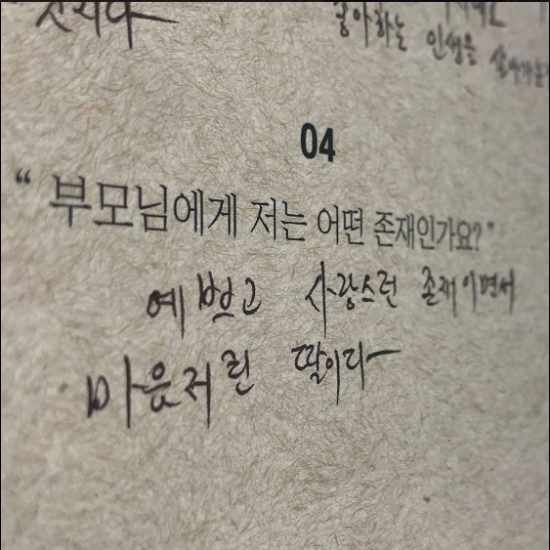 좋아하는 인생을
04
“부모님에게 저는 어떤 존재인가요?”
예쁘고 사랑스런 존재이면서
마음저린 딸이다